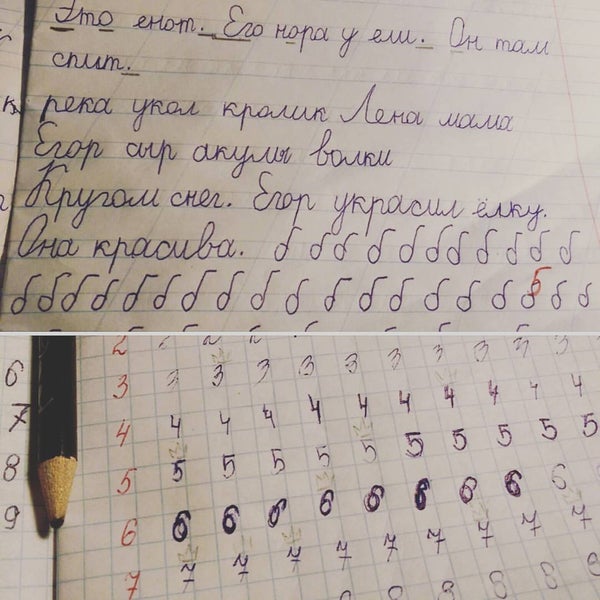 Это енот. Его нора у ели. Он там
спит.
река укол кролик Лена мама
Егор сыр акулы волки
Кругом снег. Егор украсил ёлку.
Она красива. б б б б б б б б б б б
б б б б б б б б б б б б б б б б б б б
2 2 2 2
6 3 3 3 3 3 3 3 3 3 3 3
7 4 4 4 4 4 4 4 4 4 4 4
8 5 5 5 5 5 5 5 5 5 5 5
9 6 6 6 6 6 6 6 6 6 6
7 7 7 7 7 7 7 7 7 7
8 8 8 8 8